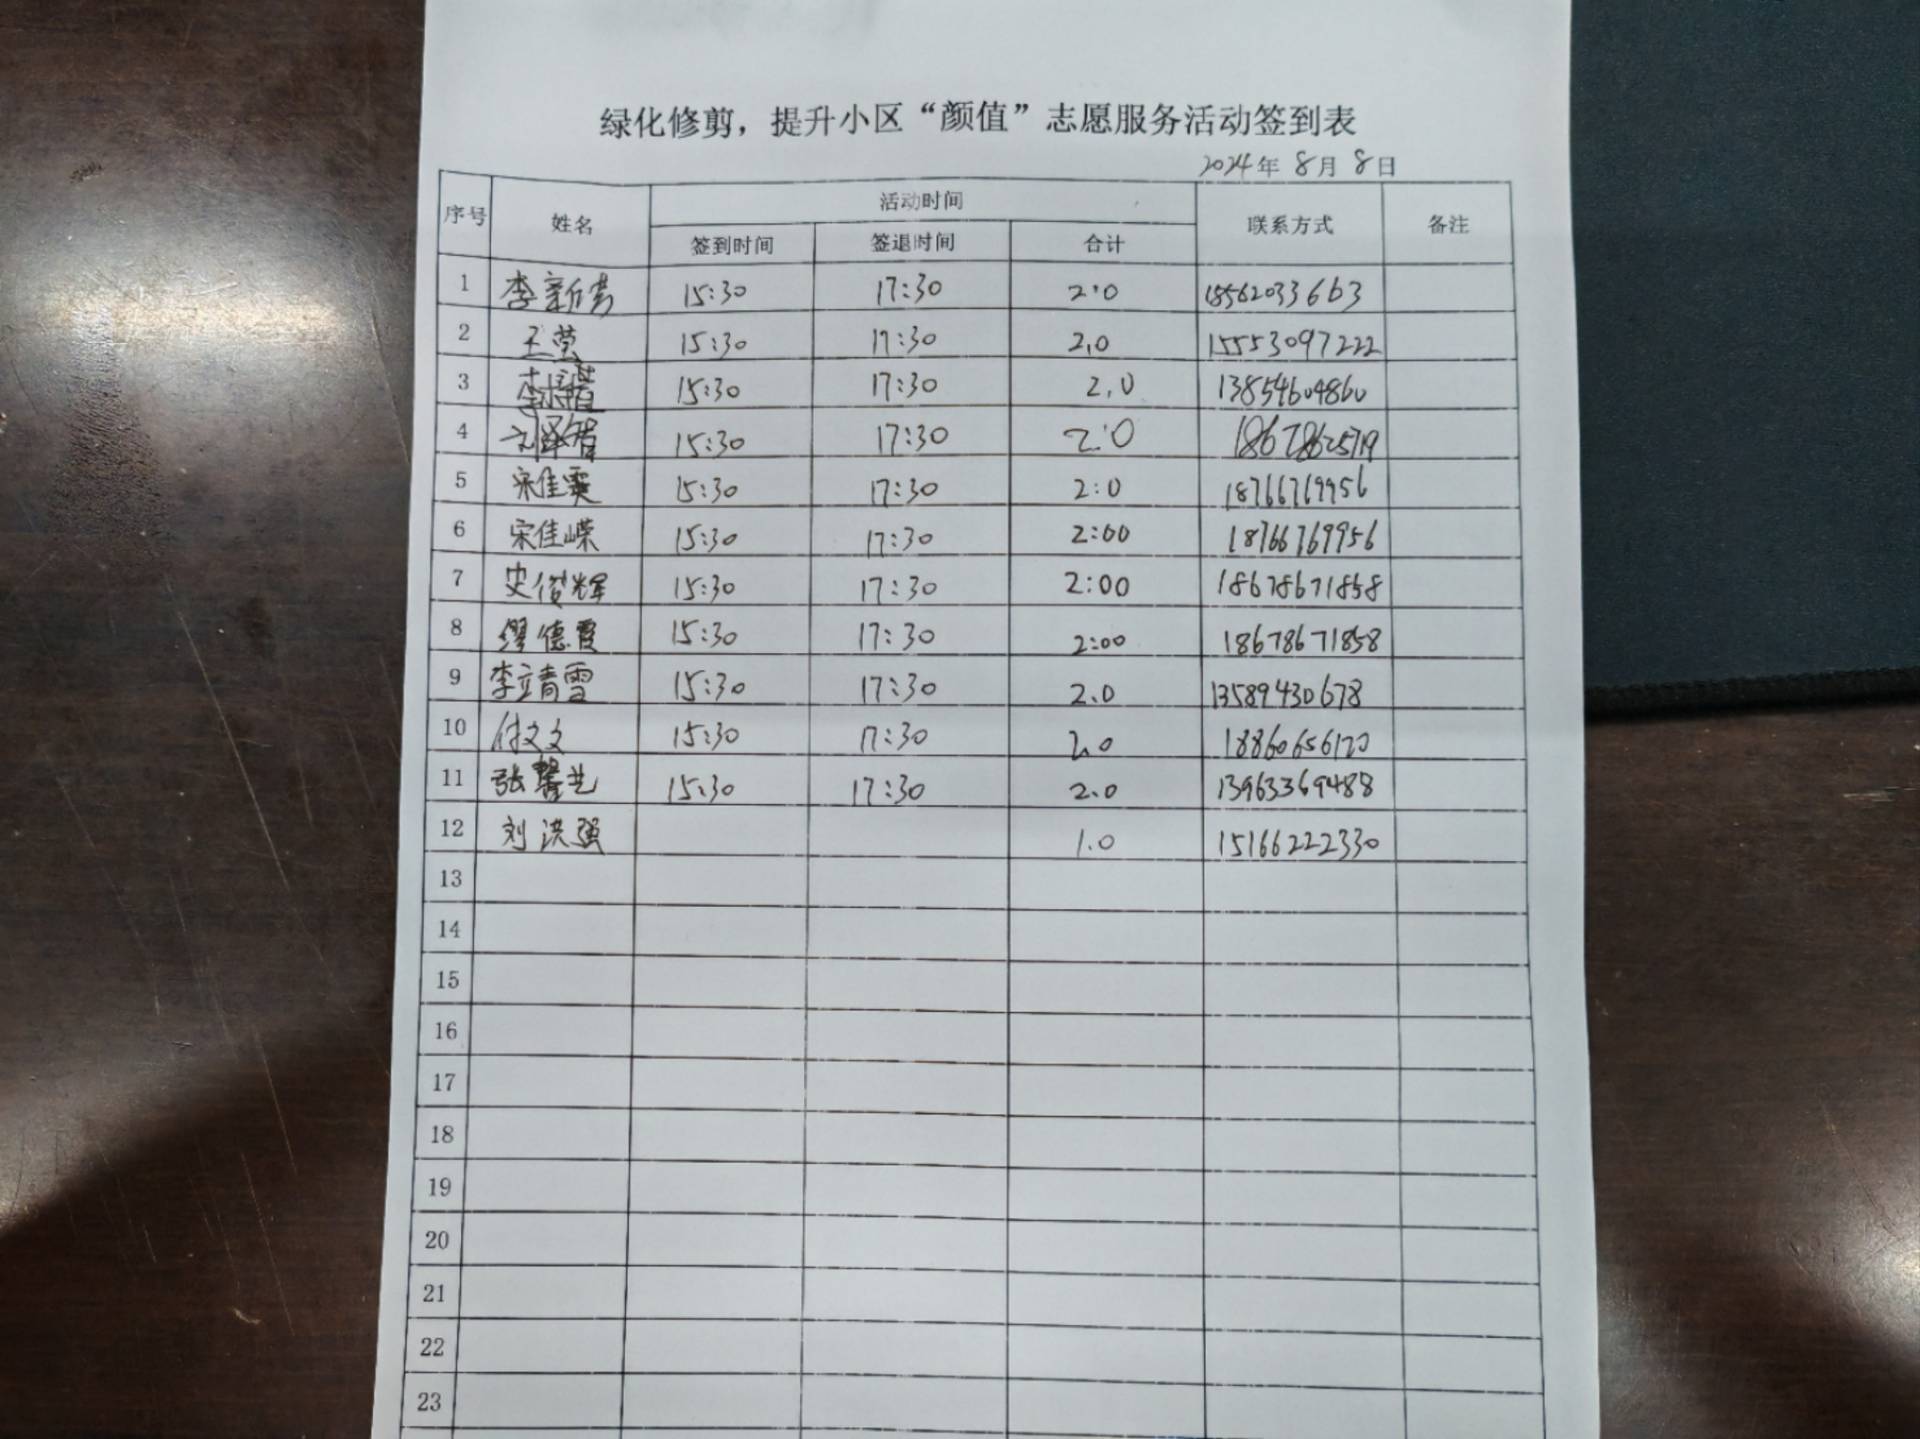 绿化修剪，提升小区“颜值”志愿服务活动签到表
2024年 8月 8日
序号 姓名 活动时间 联系方式 备注
签到时间 签退时间 合计
1 李新芳 15:30 17:30 2.0 18562033663
2 王莹 15:30 17:30 2.0 15553097222
3 15:30 17:30 2.0 13854604860
4 15:30 17:30 2.0 18678625719
5 宋佳雯 15:30 17:30 2:0 18766769956
6 宋佳嵘 15:30 17:30 2:00 18766769956
7 史俊辉 15:30 17:30 2:00 18678671858
8 缪德霞 15:30 17:30 2:00 18678671858
9 李立青雪 15:30 17:30 2.0 13589430678
10 付文文 15:30 17:30 2.0 18860656120
11 张馨艺 15:30 17:30 2.0 13963369488
12 刘洪强 1.0 15166222330
13
14
15
16
17
18
19
20
21
22
23